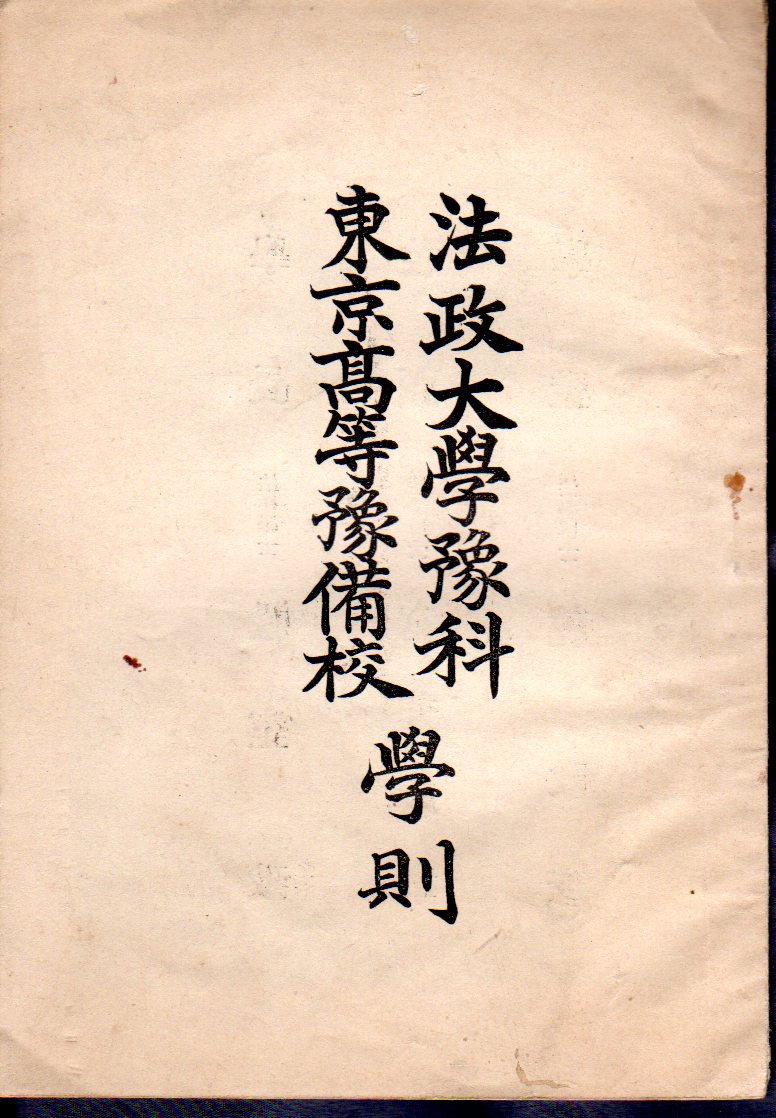 法政大學豫科
東京髙等豫備校
學則